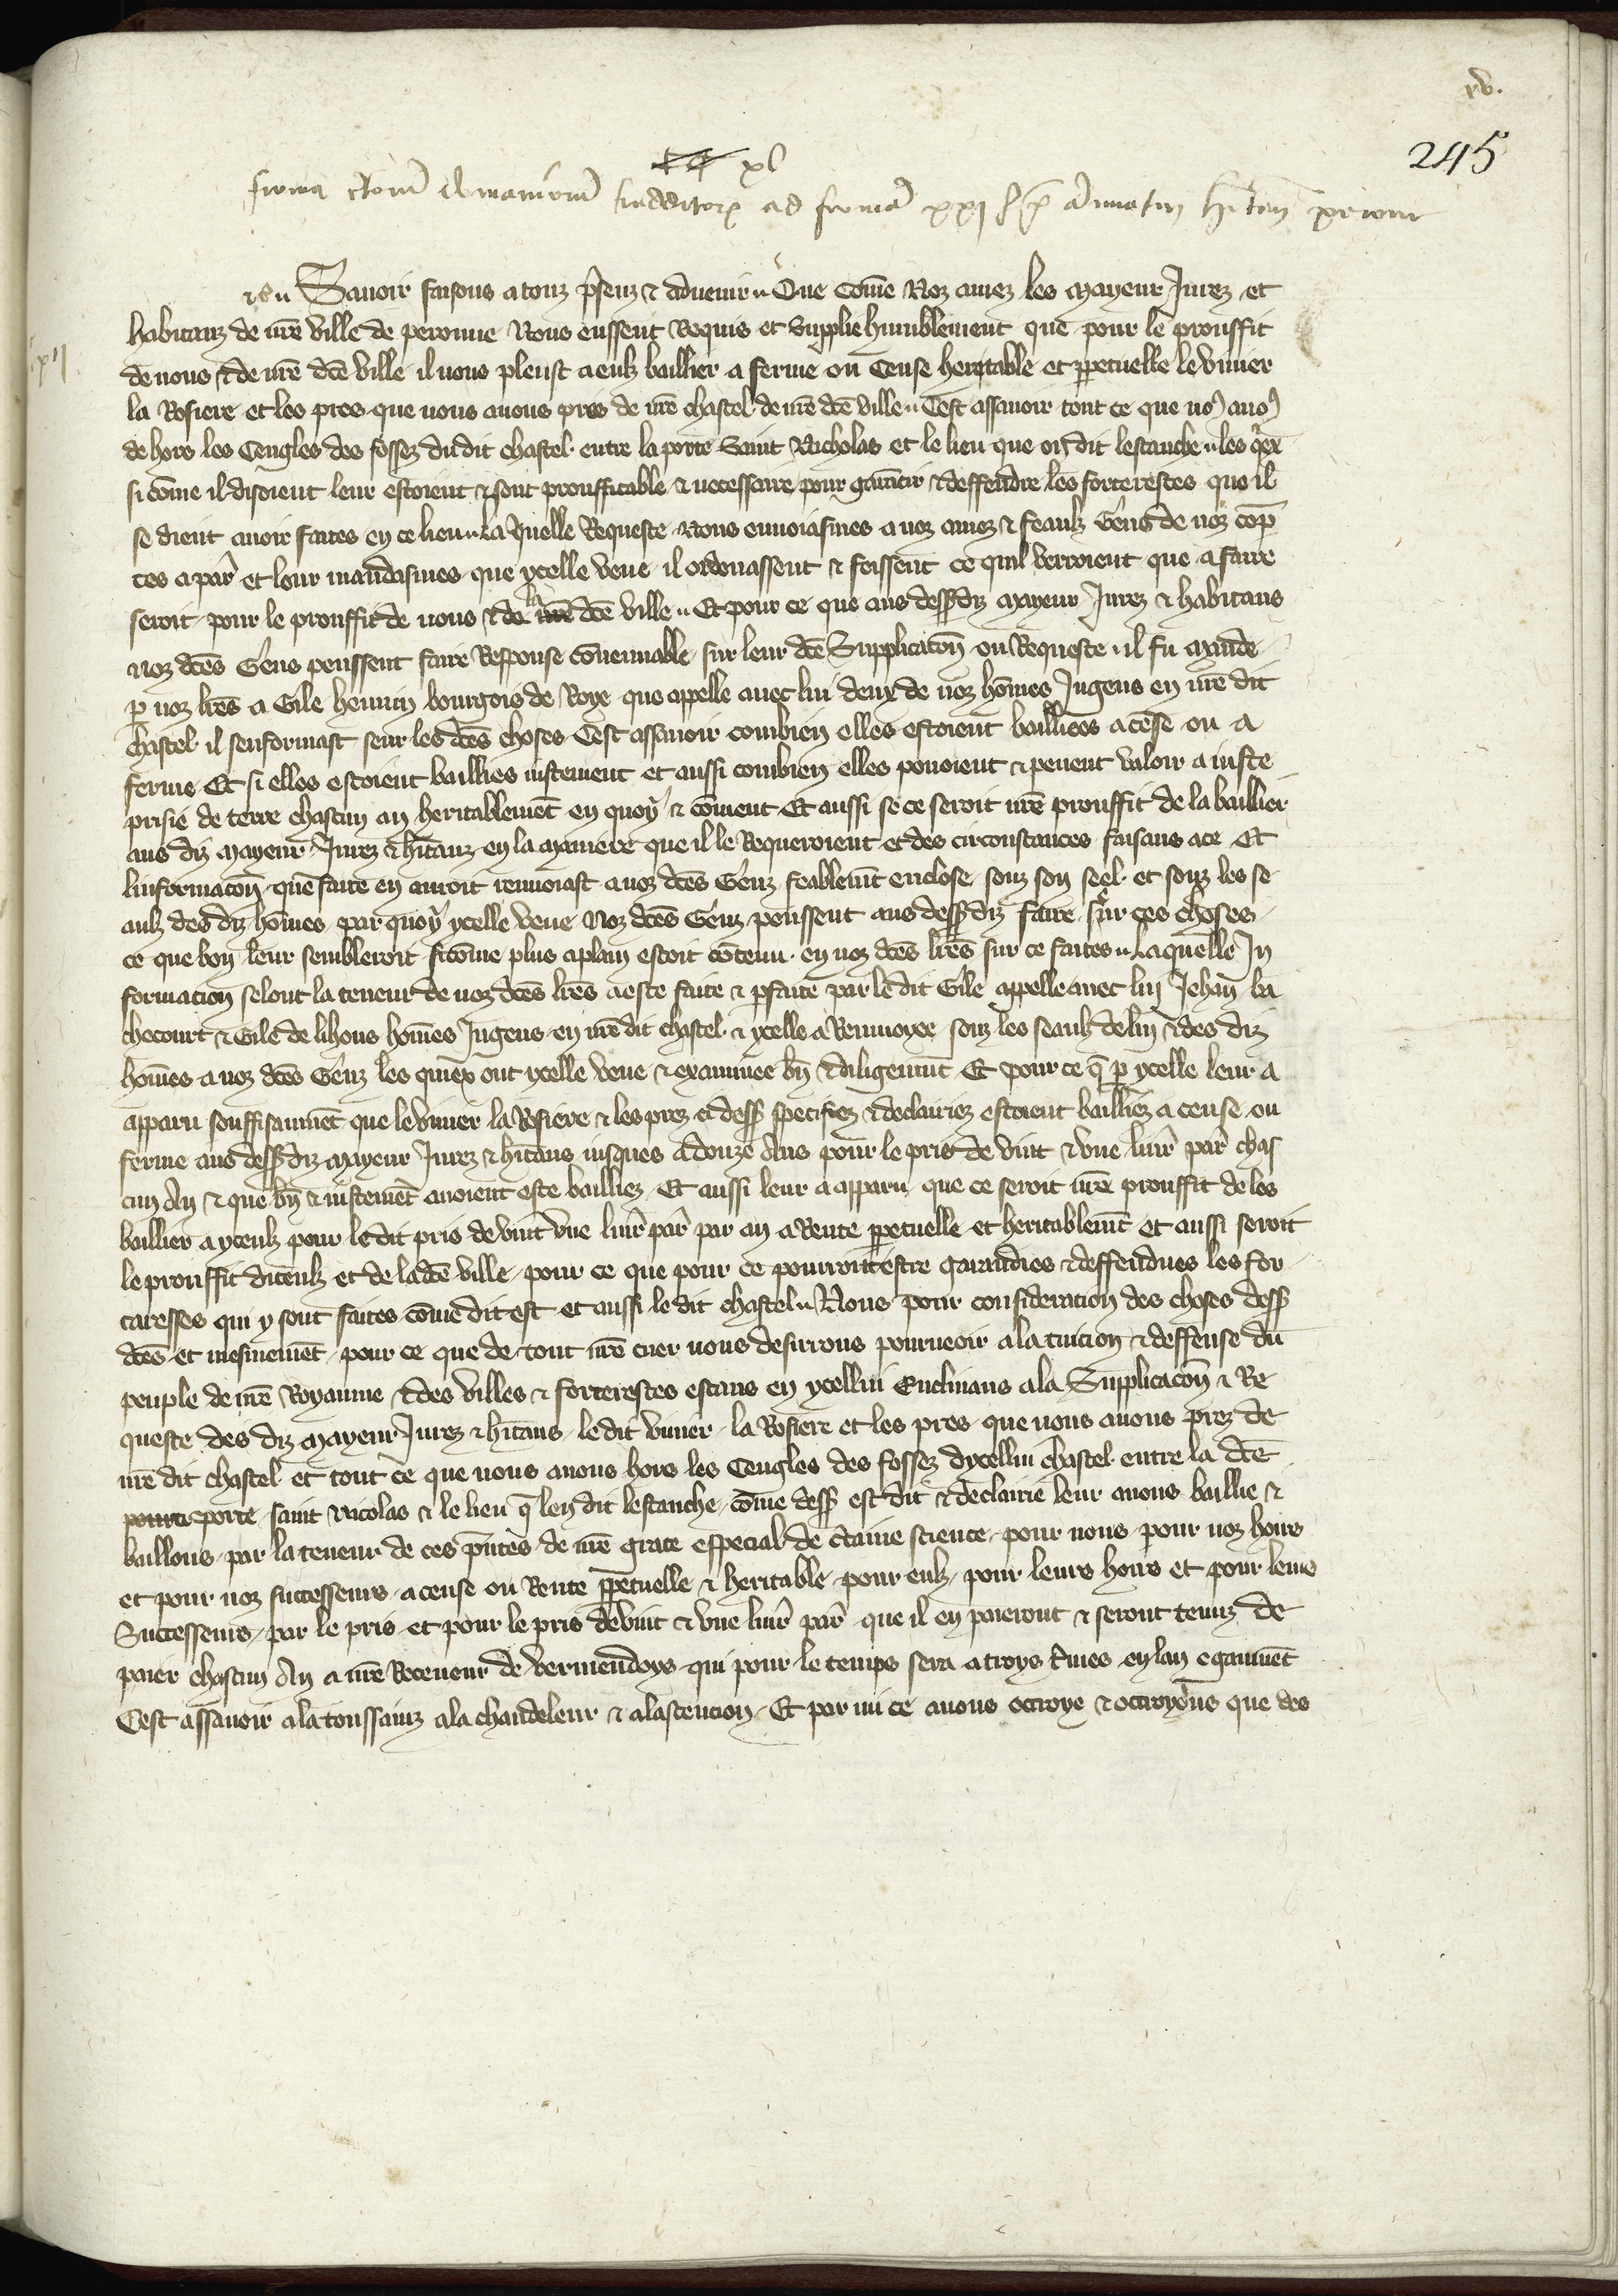 xv.
245
xl
firma rerum
ad firmam xxj l. p.
Savoir faisons a touz p̃senz ⁊ advenir Que Cõme Noz amez les Mayeur Jurez et
habitanz de nr̃e ville de peronne Nous eussent Requis et Supplie humblement que pour le prouffit
de nous ⁊ de nr̃e dc̃e ville il nous pleust a eulz baillier a ferme ou Cense heritable et ꝑpetuelle le vivier
la Rosiere et les pres que nous avons pres de nr̃e chastel de nr̃e dc̃e ville Cest assavoir tout ce que nos avos
de hors les Cengles des fossez du dit chastel entre la porte Saint Nicholas et le lieu que on dit lestanche les q̃ex
si cõme il disoient leur estoient ⁊ sont prouffitable ⁊ necessaire pour garãtir ⁊ deffendre les forterestes que il
se dient avoir faites en ce lieu La quelle Requeste Nous envoiasmes a noz amez ⁊ feaulz Gens de noz cõp
tes a par̃ et leur mandasmes que ycelle veue il ordenassent ⁊ feissent ce quil verroient que a faire
seroit pour le prouffit de nous ⁊ de la nr̃e dc̃e ville Et pour ce que aus dessz diz Mayeur Jurez ⁊ habitans
noz dc̃es Gens peussent faire Response cõvenuable sur leur dc̃e Supplicacõn ou Requeste il fu mãde
ꝑ noz lr̃es a Gile hennin bourgois de Roye que appelle avec lui deux de noz hõmes Jugens en nr̃e dit
chastel il senformast seur les dc̃es choses Cest assavoir combien elles estoient bailliees a cẽse ou a
ferme Et si elles estoient baillies justement et aussi combien elles povoient ⁊ pevent valoir a juste
prisie de terre chascun an heritablemẽt en quoy ⁊ cõment Et aussi se ce seroit nr̃e prouffit de la baillier
aus diz Mayeur Jurez ⁊ hĩtanz en la maniere que il le Requeroient et des circonstances faisans a ce Et
linformacõn que faite en auroit renvoiast a noz dc̃es Genz feablemt̃ enclose souz son seel et souz les se
aulz des diz hõmes par quoy ycelle veue Noz dc̃es Genz peussent aus dessz diz faire sur ces choses
ce que bon leur sembleroit si cõme plus a plain estoit cõtenu en noz dc̃es lr̃es sur ce faites La quelle In
formation selont la teneur de noz dc̃es lr̃es a este faite ⁊ ꝑfaite par le dit Gile appelle avec lui Jehan ba
checourt ⁊ Gile de lihons hõmes Jugens en nr̃e dit chastel ⁊ ycelle a Renvoyee souz les seaulz de lui ⁊ des diz
hõmes a noz dc̃es Genz les quiex ont ycelle veue ⁊ examinee bñ ⁊ diligentmt̃ Et pour ce q̃ ꝑ ycelle leur a
apparu souffisanmẽt que le vivier la Rosiere ⁊ les prez ci dessz specifiez ⁊ declairiez estoient bailliez a cense ou
ferme aus dessz diz Mayeur Jurez ⁊ hĩtans jusques a douze Ans pour le pris de vint ⁊ vne livr̃ par̃ chas
cun An ⁊ que bñ ⁊ justemẽt avoient este bailliez Et aussi leur a apparu que ce seroit nr̃e prouffit de les
baillier a yceulz pour le dit pris de vint vne livr̃ par̃ par an a Rente ꝑpetuelle et heritablemt̃ et aussi seroit
le prouffit diceulz et de la dc̃e ville pour ce que pour ce pourroient estre garandies ⁊ deffendues les for
taresses qui y sont faites cõme dit est et aussi le dit chastel Nous pour consideration des choses dessz
dc̃es et mesmemẽt pour ce que de tout nr̃e cuer nous desirrons pourveoir a la tuicion ⁊ deffense du
peuple de nr̃e Royaume ⁊ des villes ⁊ forterestes estans en ycellui Enclinans a la Supplicacõn ⁊ Re
queste des diz Mayeur Jurez ⁊ hĩtans le dit vivier la Rosiere et les pres que nous avons prez de
nr̃e dit chastel et tout ce que nous avons hors les Cengles des fossez dycellui chastel entre la dc̃e
porte saint Nicolas ⁊ le lieu q̃ len dit lestanche cõme dessz est dit ⁊ declairie leur avons baillie ⁊
baillons par la teneur de ces p̃ntes de nr̃e grace especial de c̃taine science pour nous pour noz hoirs
et pour noz successeurs a cense ou Rente ꝑpetuelle ⁊ heritable pour eulz pour leurs hoirs et pour leurs
Successeurs par le pris et pour le pris de vint ⁊ vne livr̃ par̃ que il en paieront ⁊ seront tenuz de
paier chascun An a nr̃e Receveur de vermendoys qui pour le temps sera a troys t̃mes en lan egaumẽt
Cest assavoir a la toussainz a la chandeleur ⁊ a lascencion Et par mi ce avons octroye ⁊ octroyons que des